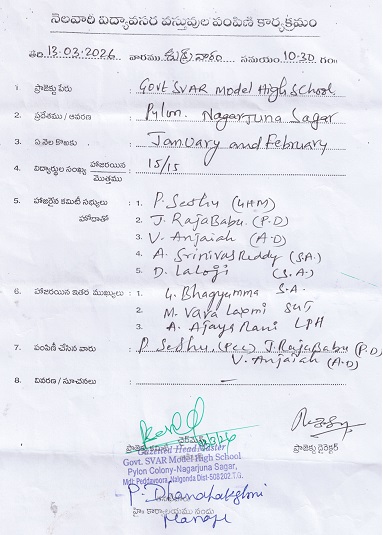 నెలవారి విద్యావసర వస్తువుల పంపిణీ కార్యక్రమం
తేది 13-03-2026 వారము శుక్రవారం సమయం 10-30 గం॥
1. ప్రాజెక్టు పేరు : Govt SVAR Model High School
2. ప్రదేశము / ఆవరణ : Pylon. Nagarjuna Sagar
3. ఏ నెల కొఱకు : January and February
4. విద్యార్థుల సంఖ్య హాజరయిన / మొత్తము : 15/15
5. హాజరైన కమిటీ సభ్యులు : 1. P. Sedhu (LHM)
హోదాతో 2. J. RajaBabu. (P.D)
3. V. Anjaiah (A.D)
4. A. Srinivas Reddy (S.A.)
5. D. Laloji (S.A.)
6. హాజరయిన ఇతర ముఖ్యులు : 1. G. Bhagyamma S.A.
2. M. Vara Laxmi SGT
3. A. Ajays Rani LPH
7. పంపిణీ చేసిన వారు : P. Sedhu. (Pcc) J. RajaBabu (P.D)
V. Anjaiah (A.D)
8. వివరణ / సూచనలు : —
ప్రాజెక్టు ఛైర్మెన్ ప్రాజెక్టు డైరెక్టర్
Gazetted Head Master
Govt. SVAR Model High School
Pylon Colony-Nagarjuna Sagar,
Mdl: Peddavoora, Nalgonda Dist-508 202. T.G.
హెచ్ కార్యాలయము నందు